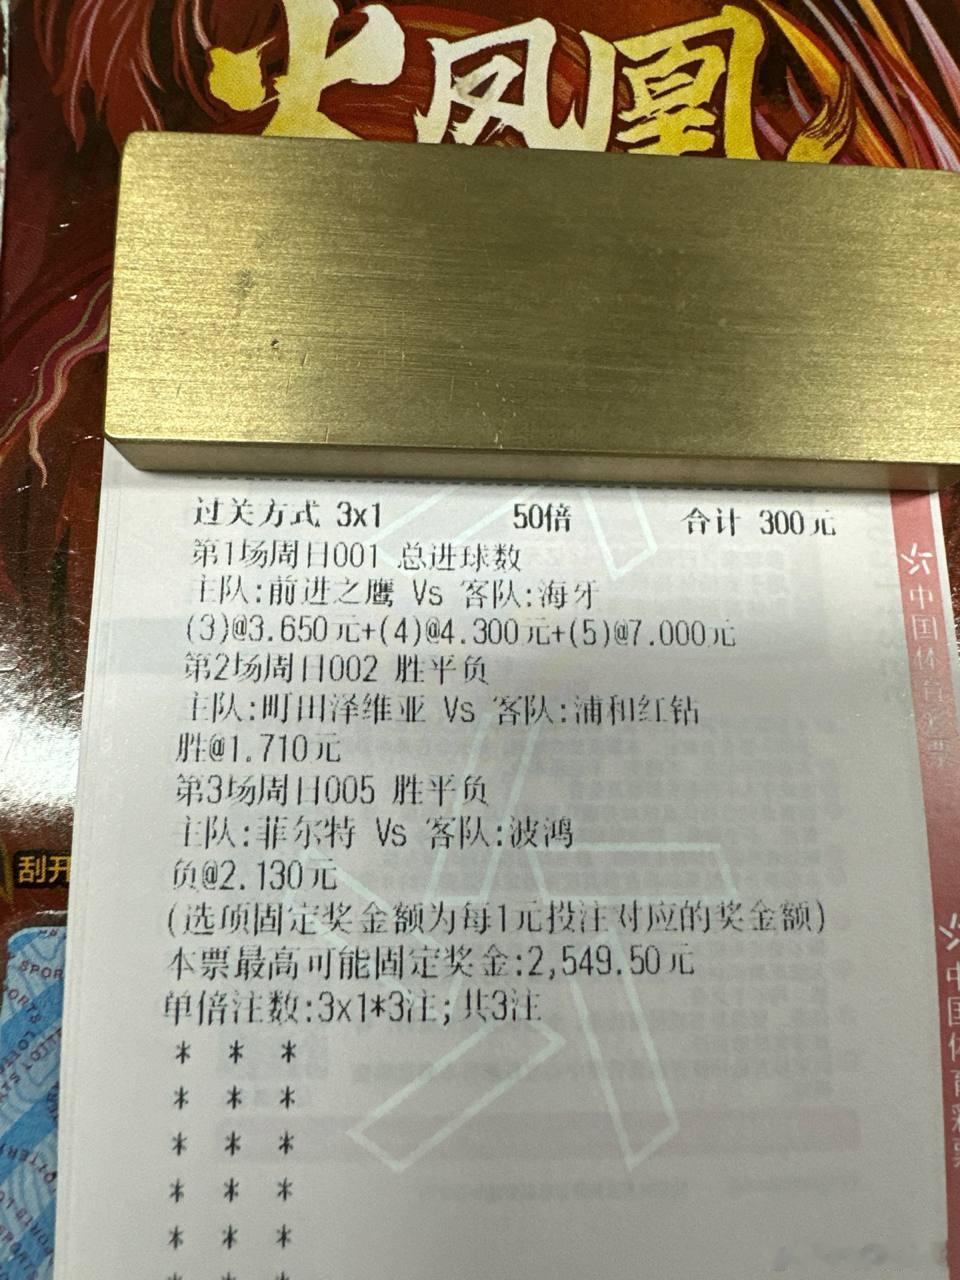 火凤凰
过关方式 3x1 50倍 合计 300元
第1场周日001 总进球数
主队:前进之鹰 Vs 客队:海牙
(3)@3.650元+(4)@4.300元+(5)@7.000元
第2场周日002 胜平负
主队:町田泽维亚 Vs 客队:浦和红钻
胜@1.710元
第3场周日005 胜平负
主队:菲尔特 Vs 客队:波鸿
负@2.130元
(选项固定奖金额为每1元投注对应的奖金额)
本票最高可能固定奖金:2,549.50元
单倍注数:3x1*3注;共3注
* * *
* * *
* * *
* * *
* * *
* * *
中国体育彩票
中国体育彩票
刮开